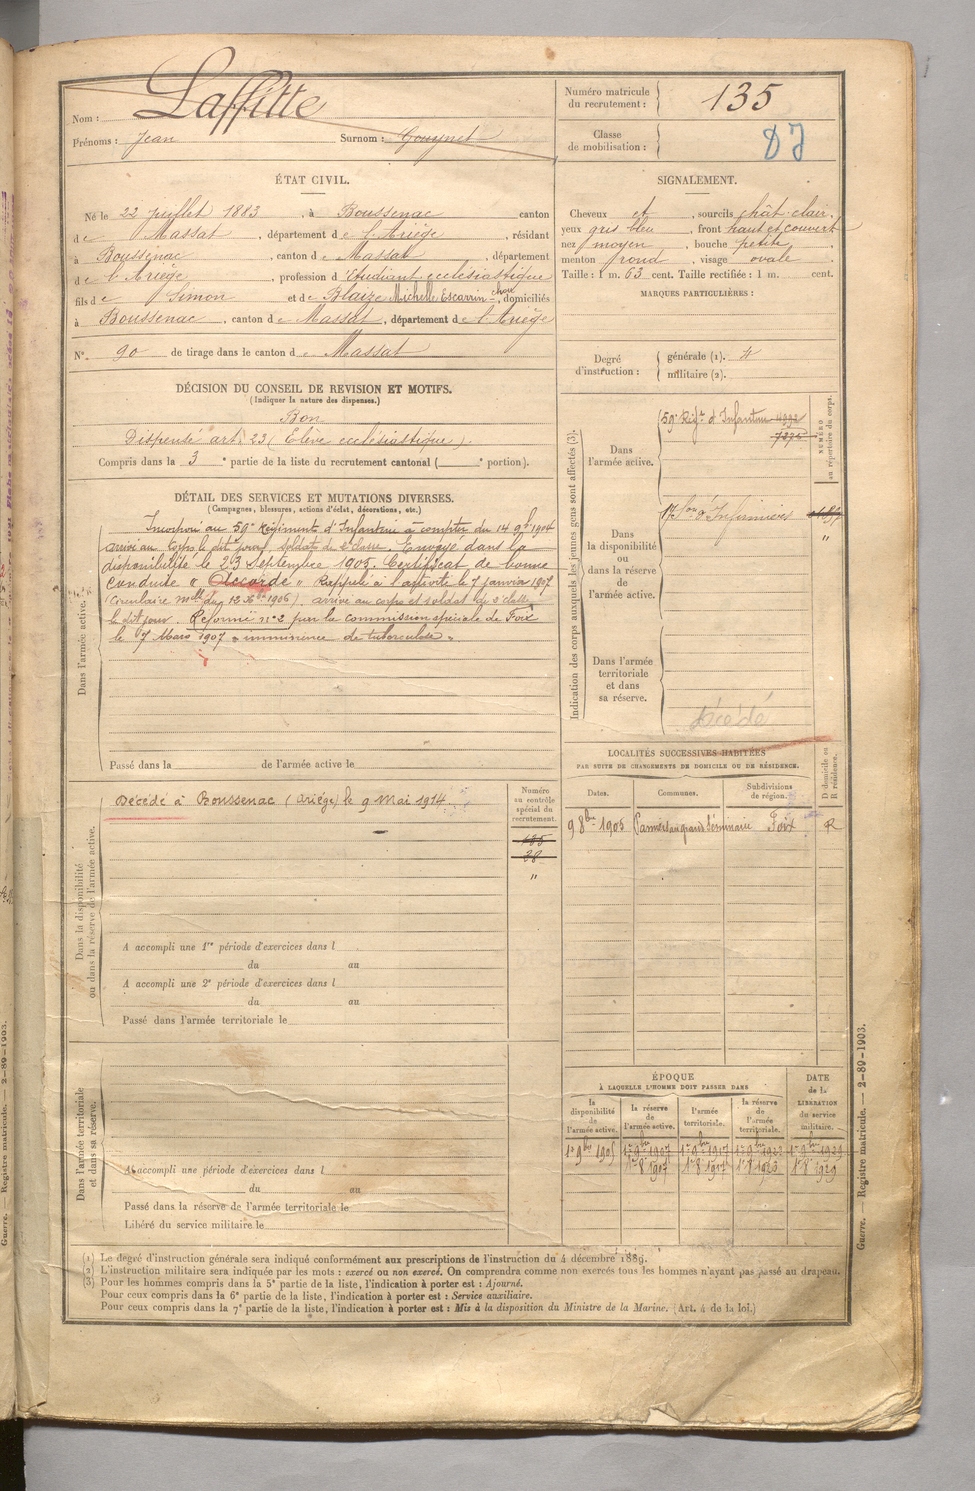 Nom : Laffitte
Prénoms : Jean Surnom : Gougnet
Numéro matricule
du recrutement : 135
Classe
de mobilisation :
ÉTAT CIVIL.
Né le 22 juillet 1883, à Boussenac canton
de Massat, département de l'Ariège, résidant
à Boussenac, canton de Massat, département
de l'Ariège, profession d'étudiant ecclésiastique
fils de Simon et de Blaize Michelle Escarrin, domiciliés
à Boussenac, canton de Massat, département de l'Ariège
N° 90 de tirage dans le canton de Massat
SIGNALEMENT.
Cheveux et, sourcils chât clair,
yeux gris bleu, front haut et couvert
nez moyen, bouche petite,
menton rond, visage ovale
Taille : 1 m. 63 cent. Taille rectifiée : 1 m. cent.
MARQUES PARTICULIÈRES :
Degré
d'instruction :
générale (1).
militaire (2).
DÉCISION DU CONSEIL DE REVISION ET MOTIFS.
(Indiquer la nature des dispenses.)
Bon
Dispensé art. 23 (Elève ecclésiastique).
Compris dans la 3e partie de la liste du recrutement cantonal ( portion).
DÉTAIL DES SERVICES ET MUTATIONS DIVERSES.
(Campagnes, blessures, actions d'éclat, décorations, etc.)
Dans l'armée active.
Incorporé au 59e Régiment d'Infanterie à compter du 14 9bre 1904
arrivé au corps le dit jour, soldat de 2e classe. Envoyé dans la
disponibilité le 23 Septembre 1905. Certificat de bonne
conduite « Accordé » Rappelé à l'activité le 7 janvier 1907
(Circulaire mlle du 12 Xbre 1906). arrivé au corps et soldat de 2e classe
le dit jour. Réformé n° 2 par la commission spéciale de Foix
le 7 Mars 1907 « imminence de tuberculose ».
Passé dans la de l'armée active le
Indication des corps auxquels les jeunes gens sont affectés (3).
NUMÉRO
au répertoire du corps.
Dans
l'armée active.
59e Régt d'Infanterie
Dans
la disponibilité
ou
dans la réserve
de
l'armée active.
17e Son d'Infirmiers
"
Dans l'armée
territoriale
et dans
sa réserve.
Décédé
LOCALITÉS SUCCESSIVES HABITÉES
PAR SUITE DE CHANGEMENTS DE DOMICILE OU DE RÉSIDENCE.
Dates.
Communes.
Subdivisions
de région.
D domicile ou
R résidence.
9 8bre 1905 Pamiers au grand Séminaire Foix R
Dans la disponibilité
ou dans la réserve de l'armée active.
Décédé à Boussenac (Ariège) le 9 Mai 1914.
Numéro
au contrôle
spécial du
recrutement.
135
28
"
A accompli une 1re période d'exercices dans l
du au
A accompli une 2e période d'exercices dans l
du au
Passé dans l'armée territoriale le
Dans l'armée territoriale
et dans sa réserve.
A accompli une période d'exercices dans l
du au
Passé dans la réserve de l'armée territoriale le
Libéré du service militaire le
ÉPOQUE
À LAQUELLE L'HOMME DOIT PASSER DANS
DATE
de la
LIBÉRATION
du service
militaire.
la
disponibilité
de
l'armée active.
la réserve
de
l'armée active.
l'armée
territoriale.
la réserve
de
l'armée
territoriale.
(1) Le degré d'instruction générale sera indiqué conformément aux prescriptions de l'instruction du 4 décembre 1889.
(2) L'instruction militaire sera indiquée par les mots : exercé ou non exercé. On comprendra comme non exercés tous les hommes n'ayant pas passé au drapeau.
(3) Pour les hommes compris dans la 5e partie de la liste, l'indication à porter est : Ajourné.
Pour ceux compris dans la 6e partie de la liste, l'indication à porter est : Service auxiliaire.
Pour ceux compris dans la 7e partie de la liste, l'indication à porter est : Mis à la disposition du Ministre de la Marine. (Art. 4 de la loi.)
Guerre. — Registre matricule. — 2-89-1903.
Guerre. — Registre matricule. — 2-89-1903.